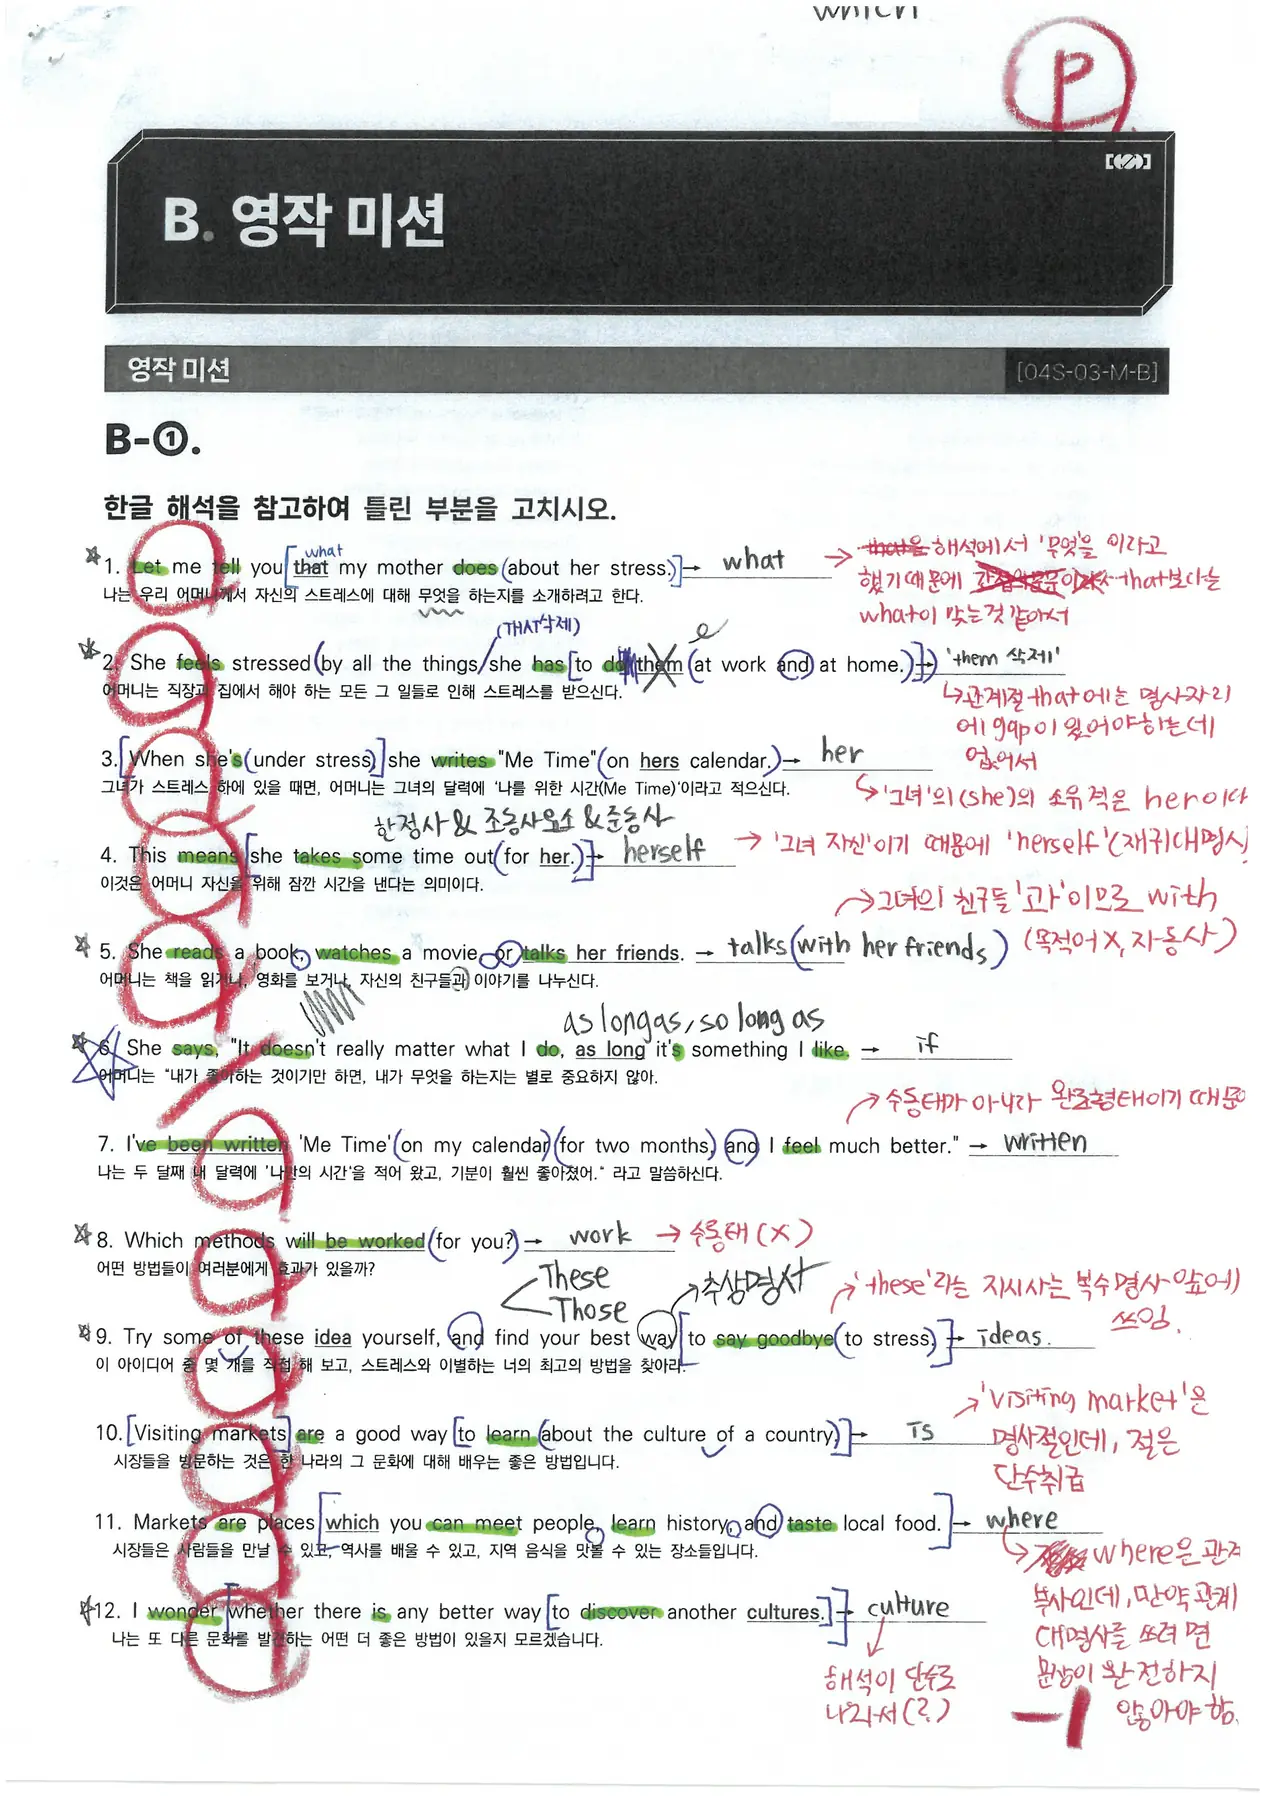 which
P
B. 영작 미션
영작 미션
[04S-03-M-B]
B-①.
한글 해석을 참고하여 틀린 부분을 고치시오.
what
1. Let me tell you that my mother does about her stress. → what
나는 우리 어머니께서 자신의 스트레스에 대해 무엇을 하는지를 소개하려고 한다.
→ 해석에서 '무엇'을 이라고
했기 때문에 that보다는
what이 맞는것 같아서
(that 삭제)
2. She feels stressed by all the things she has to do them at work and at home. → 'them 삭제'
어머니는 직장과 집에서 해야 하는 모든 그 일들로 인해 스트레스를 받으신다.
↳ 관계절 that에는 명사자리
에 gap이 있어야하는데
없어서
3. When she's under stress, she writes "Me Time" on hers calendar. → her
그녀가 스트레스 하에 있을 때면, 어머니는 그녀의 달력에 '나를 위한 시간(Me Time)'이라고 적으신다.
↳ '그녀'의(she)의 소유격은 her이다
한정사 & 조동사요소 & 준동사
4. This means she takes some time out for her. → herself
이것은 어머니 자신을 위해 잠깐 시간을 낸다는 의미이다.
→ '그녀 자신'이기 때문에 'herself'(재귀대명사)
→ 그녀의 친구들 '과'이므로 with
(목적어X, 자동사)
5. She reads a book, watches a movie or talks her friends. → talks (with her friends)
어머니는 책을 읽거나, 영화를 보거나, 자신의 친구들과 이야기를 나누신다.
as long as, so long as
6. She says, "It doesn't really matter what I do, as long it's something I like. → if
어머니는 "내가 좋아하는 것이기만 하면, 내가 무엇을 하는지는 별로 중요하지 않아.
→ 수동태가 아니라 완료형태이기 때문
7. I've been written 'Me Time' on my calendar for two months, and I feel much better." → written
나는 두 달째 내 달력에 '나만의 시간'을 적어 왔고, 기분이 훨씬 좋아졌어." 라고 말씀하신다.
8. Which methods will be worked for you? → work → 수동태(X)
어떤 방법들이 여러분에게 효과가 있을까?
These
Those
추상명사
→ 'these'라는 지시사는 복수명사 앞에
쓰임.
9. Try some of these idea yourself, and find your best way to say goodbye to stress. → ideas.
이 아이디어 중 몇 개를 직접 해 보고, 스트레스와 이별하는 너의 최고의 방법을 찾아라.
10. Visiting markets are a good way to learn about the culture of a country. → is
시장들을 방문하는 것은 한 나라의 그 문화에 대해 배우는 좋은 방법입니다.
→ 'visiting market'은
명사절인데, 절은
단수취급
11. Markets are places which you can meet people, learn history, and taste local food. → where
시장들은 사람들을 만날 수 있고, 역사를 배울 수 있고, 지역 음식을 맛볼 수 있는 장소들입니다.
→ where은 관계
부사인데, 만약 관계
대명사를 쓰려면
문장이 완전하지
않아야 함.
12. I wonder whether there is any better way to discover another cultures. → culture
나는 또 다른 문화를 발견하는 어떤 더 좋은 방법이 있을지 모르겠습니다.
해석이 단수로
나와서(?)
-1